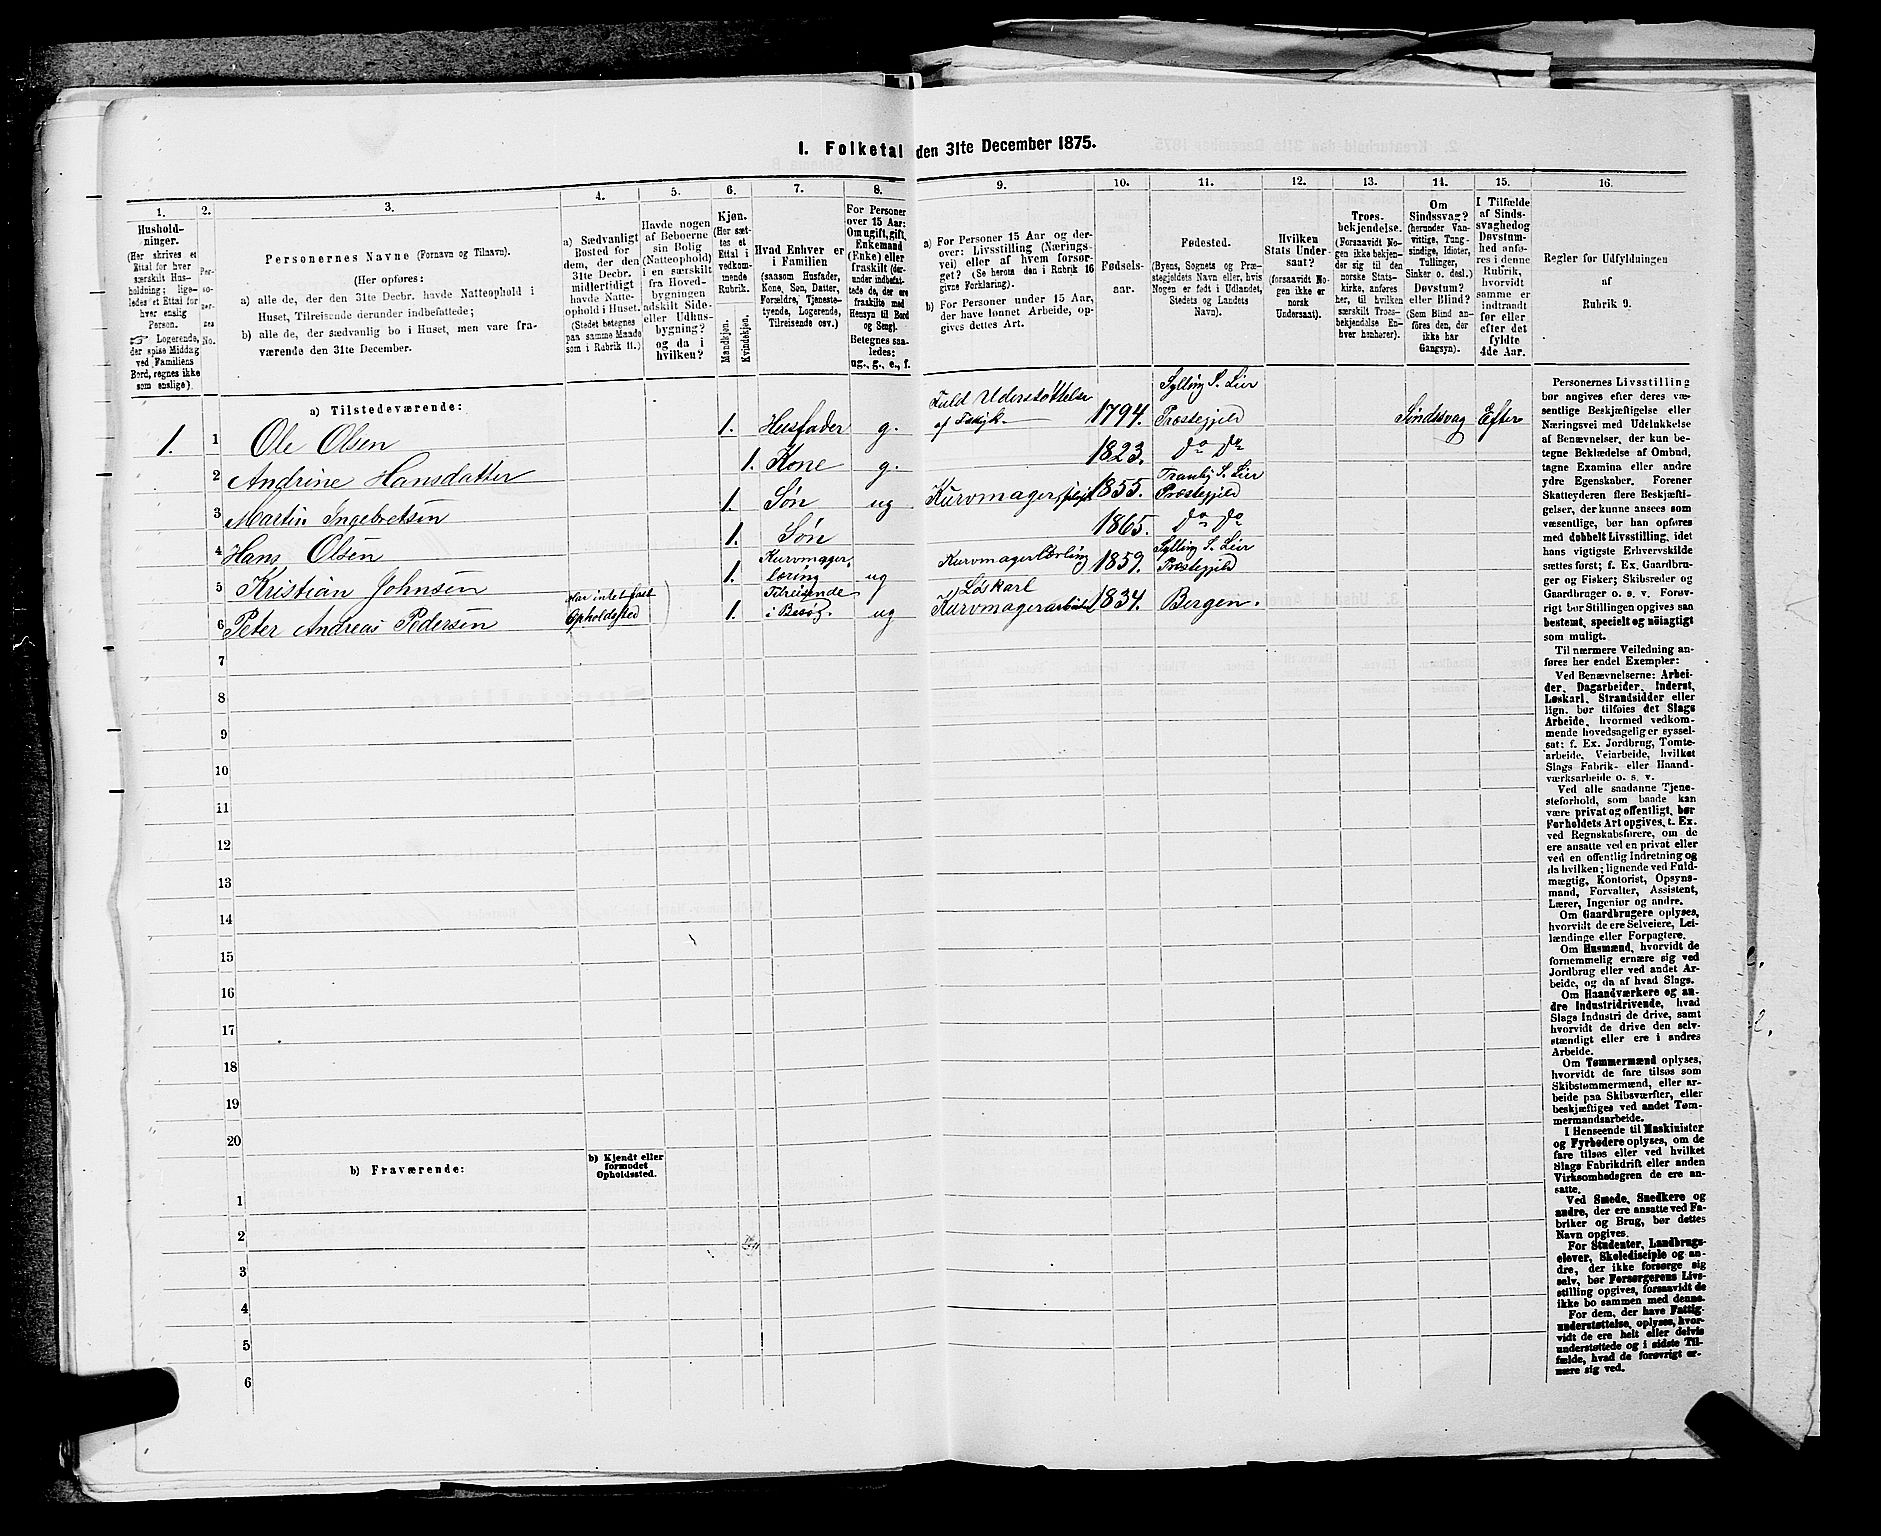 1. Folketal den 31te December 1875.
1.
Hushold-
ninger.
(Her skrives et
Ettal for hver
særskilt Hus-
holdning; lige-
ledes et Ettal for
hver enslig
Person.
☞ Logerende,
der spise Middag
ved Familiens
Bord, regnes ikke
som enslige).
2.
Per-
so-
ner-
nes
No.
3.
Personernes Navne (Fornavn og Tilnavn).
(Her opføres:
a) alle de, der den 31te Decbr. havde Natteophold i
Huset, Tilreisende derunder indbefattede;
b) alle de, der sædvanlig bo i Huset, men vare fra-
værende den 31te December.
4.
a) Sædvanligt
Bosted for
dem, der den
31te Decbr.
midlertidigt
havde Natte-
ophold i Huset.
(Stedet betegnes
paa samme Maade
som i Rubrik 11.)
5.
Havde nogen
af Beboerne
sin Bolig
(Natteophold)
i en særskilt
fra Hoved-
bygningen
adskilt Side-
eller Udhus-
bygning?
og da i
hvilken?
6.
Kjøn.
(Her sæt-
tes et
Ettal i
vedkom-
mende
Rubrik.
Mandkjøn.
Kvindekjøn.
7.
Hvad Enhver er
i Familien
(saasom Husfader,
Kone, Søn, Datter,
Forældre, Tjeneste-
tyende, Logerende,
Tilreisende osv.)
8.
For Personer
over 15 Aar:
Om ugift, gift,
Enkemand
(Enke) eller
fraskilt (der-
under indbefat-
tede de, der ere
fraskilte med
Hensyn til Bord
og Seng).
Betegnes saa-
ledes:
ug., g., e., f.
9.
a) For Personer 15 Aar og der-
over: Livsstilling (Nærings-
vei) eller af hvem forsør-
get? (Se herom den i Rubrik 16
givne Forklaring).
b) For Personer under 15 Aar,
der have lønnet Arbeide, op-
gives dettes Art.
10.
Fødsels-
aar.
11.
Fødested.
(Byens, Sognets og Præ-
stegjeldets Navn eller, hvis
Nogen er født i Udlandet,
Stedets og Landets
Navn).
12.
Hvilken
Stats Under-
saat?
(forsaavidt No-
gen ikke er
norsk
Undersaat).
13.
Troes-
bekjendelse.
(Forsaavidt No-
gen ikke bekjen-
der sig til den
norske Stats-
kirke, anføres
her, til hvilken
særskilt Troes-
bekjendelse En-
hver henhører).
14.
Om
Sindssvag?
(herunder Van-
vittige, Tung-
sindige, Idioter,
Tullinger,
Sinker o. desl.)
Døvstum?
eller Blind?
(Som Blind an-
føres den, der
ikke har
Gangsyn).
15.
I Tilfælde
af Sinds-
svaghed og
Døvstum-
hed anfø-
res i denne
Rubrik,
hvorvidt
samme er
indtraadt
før eller
efter det
fyldte
4de Aar.
16.
Regler for Udfyldningen
af
Rubrik 9.
a) Tilstedeværende:
1. 1 Ole Olsen 1. Husfader g. Fuld Understøttelse
af 1794. Sylling S. Lier
Præstegjeld Sindssvag Efter
2 Andrine Hansdatter 1. Kone g. 1823. Do Do
3 Martin Ingebretsen 1. Søn ug Kurvmager 1855. Tranby S. Lier
Præstegjeld
4 Hans Olsen 1. Søn 1865. Do Do
5 Kristian Johnsen 1. Kurvmager-
læring ug Kurvmagerlærling 1859. Sylling S. Lier
Præstegjeld
6 Peter Andreas Pedersen Har intet fast
Opholdssted 1. Tilreisende
i Besøg. ug Løskarl
Kurvmagerarbeide 1834. Bergen.
7
8
9
10
11
12
13
14
15
16
17
18
19
20
b) Fraværende:
b) Kjendt eller
formodet
Opholdssted.
1
2
3
4
5
6
Personernes Livsstilling
bør angives efter deres væ-
sentlige Beskjæftigelse eller
Næringsvei med Udelukkelse
af Benævnelser, der kun be-
tegne Beklædelse af Ombud,
tagne Examina eller andre
ydre Egenskaber. Forener
Skatteyderen flere Beskjæfti-
gelser, der kunne ansees som
væsentlige, bør han opføres
med dobbelt Livsstilling, idet
hans vigtigste Erhvervskilde
sættes først; f. Ex. Gaardbru-
ger og Fisker; Skibsreder og
Gaardbruger o. s. v. Forøv-
rigt bør Stillingen opgives saa
bestemt, specielt og nöiagtigt
som muligt.
Til nærmere Veiledning an-
føres her endel Exempler:
Ved Benævnelserne: Arbei-
der, Dagarbeider, Inderst,
Løskarl, Strandsidder eller
lign. bør tilføies det Slags
Arbeide, hvormed vedkom-
mende hovedsagelig er syssel-
sat: f. Ex. Jordbrug, Tomte-
arbeide, Veiarbeide, hvilket
Slags Fabrik- eller Haand-
værksarbeide o. s. v.
Ved alle saadanne Tjene-
steforhold, som baade kan
være privat og offentligt, bør
Forholdets Art opgives, t. Ex.
ved Regnskabsførere, om de
ere ansatte ved en privat eller
ved en offentlig Indretning og
da hvilken; lignende ved Fuld-
mægtig, Kontorist, Opsyns-
mand, Forvalter, Assistent,
Lærer, Ingeniør og andre.
Om Gaardbrugere oplyses,
hvorvidt de ere Selveiere, Lei-
lændinge eller Forpagtere.
Om Husmænd, hvorvidt de
fornemmelig ernære sig ved
Jordbrug eller ved andet Ar-
beide, og da af hvad Slags.
Om Haandværkere og an-
dre Industridrivende, hvad
Slags Industri de drive, samt
hvorvidt de drive den selv-
stændigt eller ere i andres
Arbeide.
Om Tømmermænd oplyses,
hvorvidt de fare tilsøs som
Skibstømmermænd, eller ar-
beide paa Skibsværfter, eller
beskjæftiges ved andet Tøm-
mermandsarbeide.
I Henseende til Maskinister
og Fyrbødere oplyses, om de
fare tilsøs eller ved hvilket
Slags Fabrikdrift eller anden
Virksomhedsgren de ere an-
satte.
Ved Smede, Snedkere og
andre, der ere ansatte ved Fa-
briker og Brug, bør dettes
Navn opgives.
For Studenter, Landbrugs-
elever, Skoledisciple og an-
dre, der ikke forsørge sig
selv, bør Forsørgerens Livs-
stilling opgives, forsaavidt de
ikke bo sammen med denne.
For dem, der have Fattig-
understøttelse, oplyses, hvor-
vidt de ere helt eller delvis
understøttede og i sidste Til-
fælde, hvad de forøvrigt er-
nære sig ved.